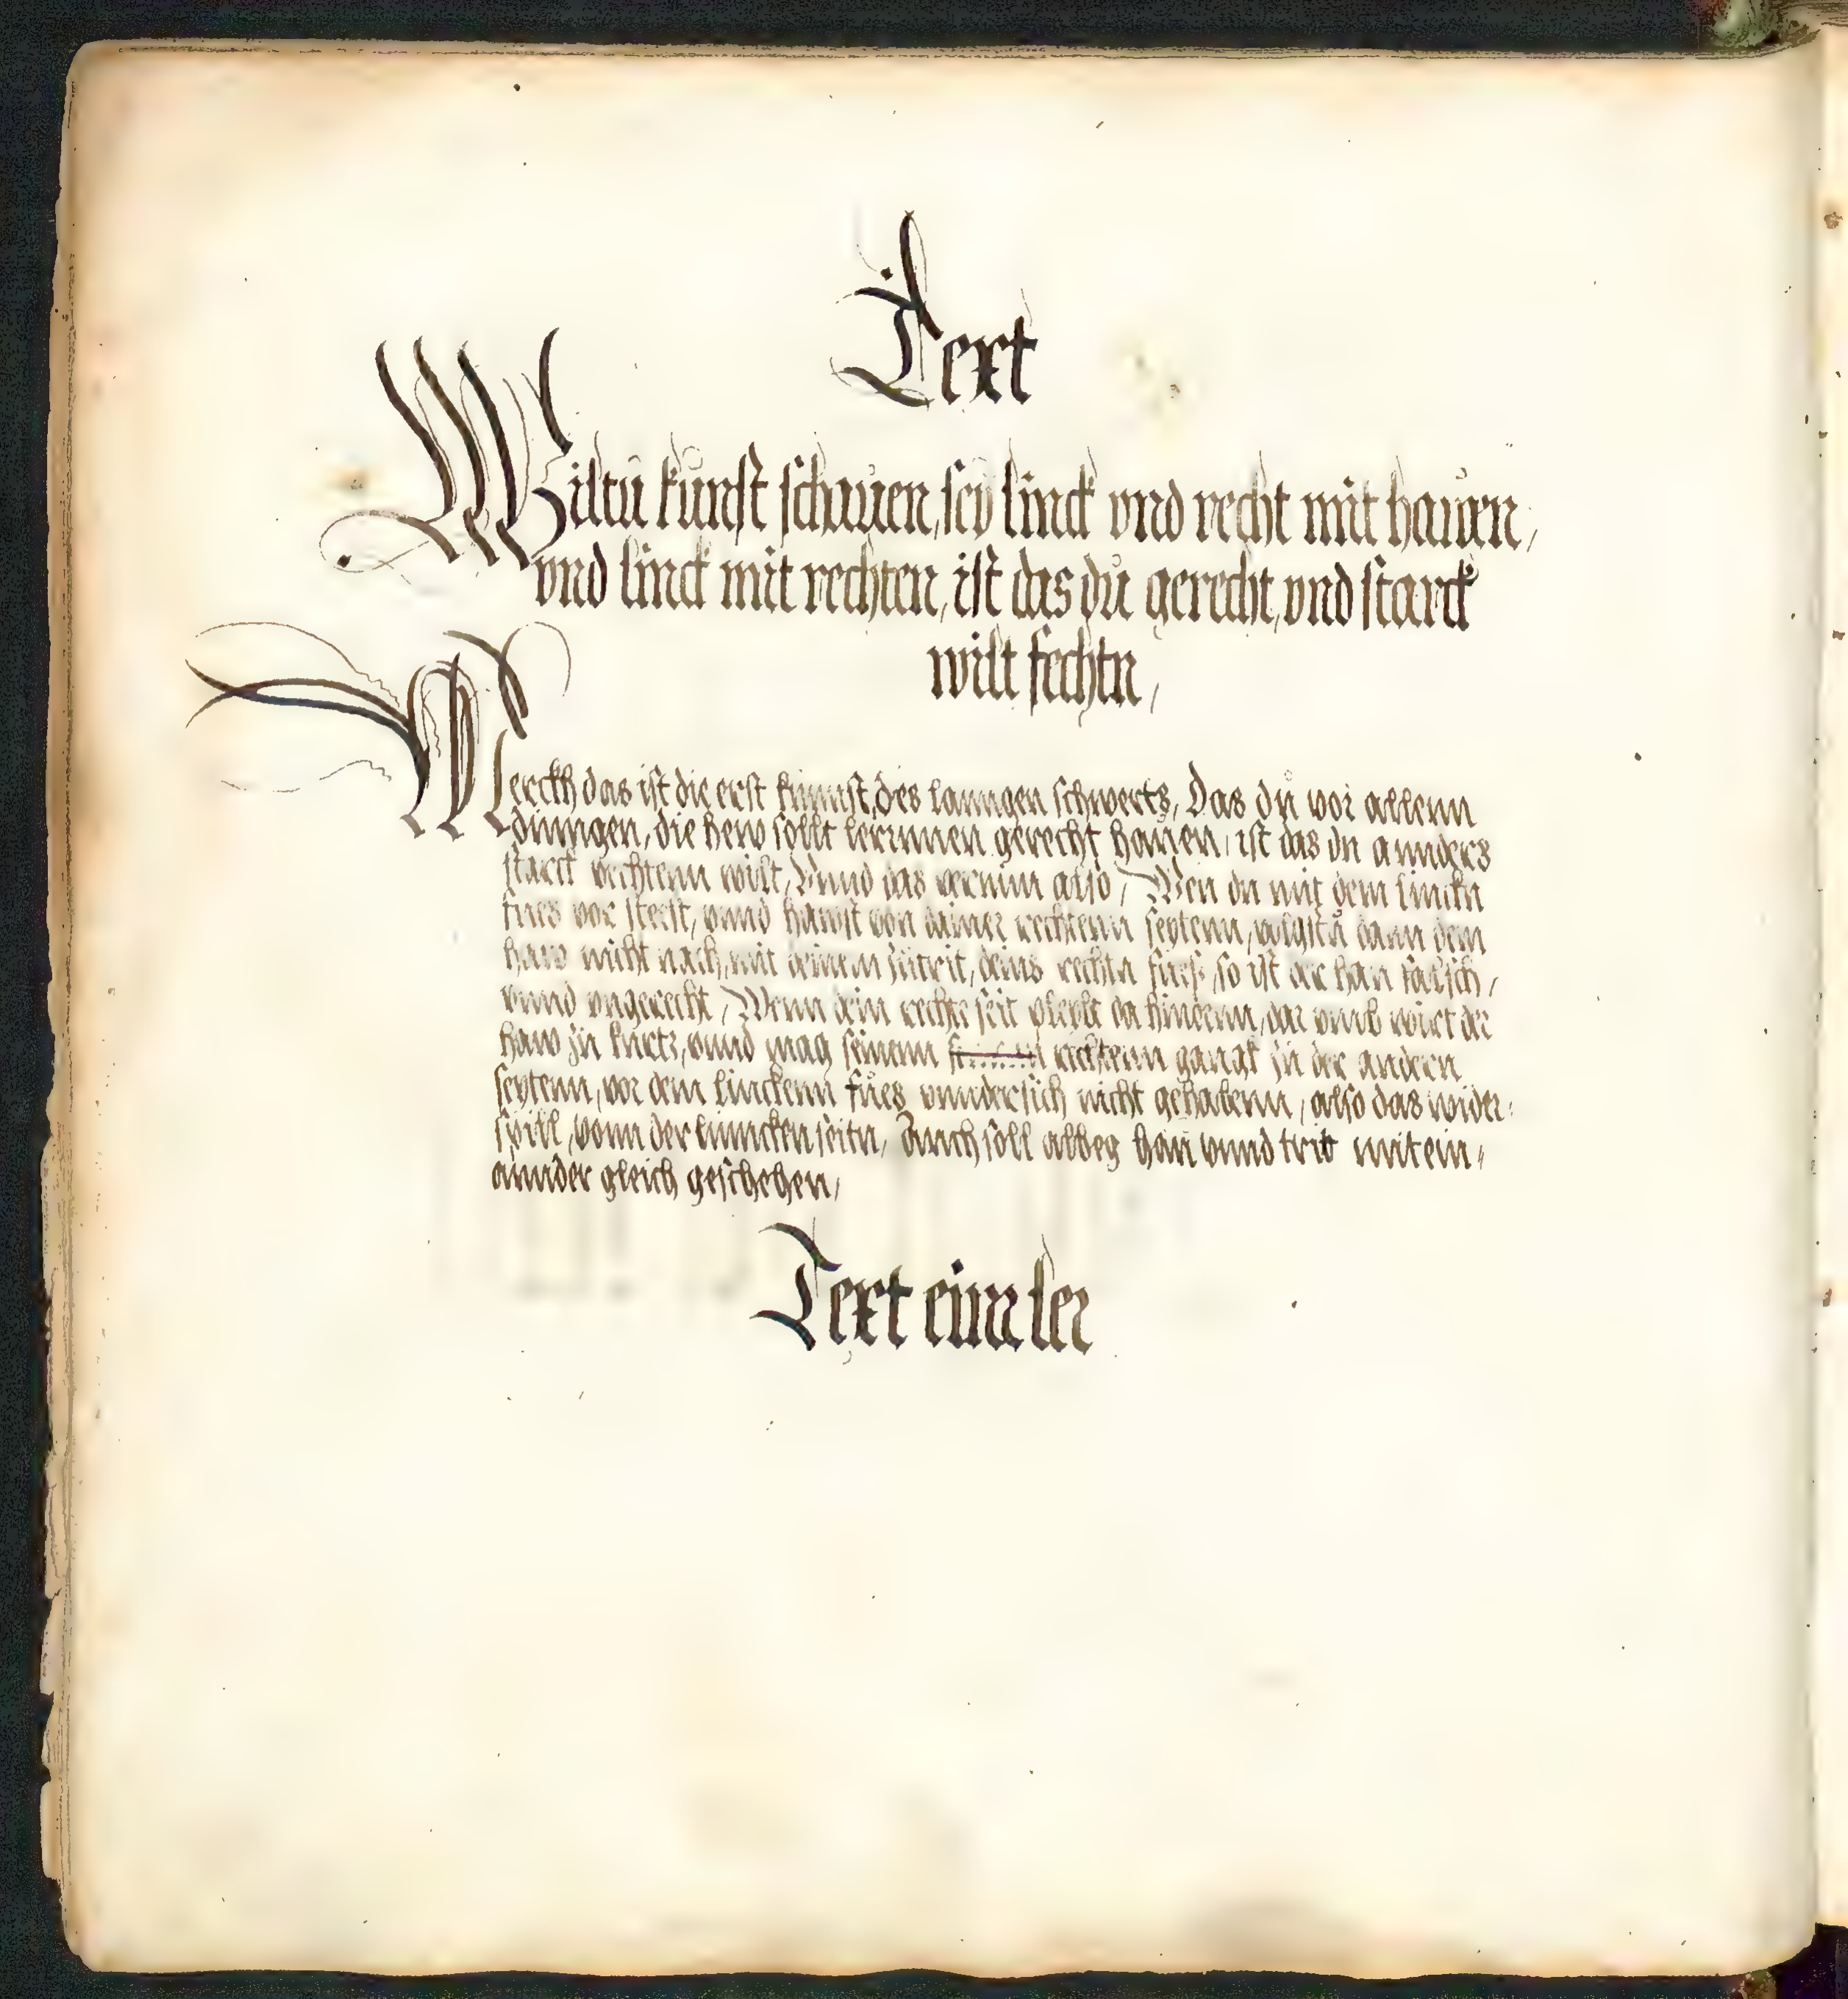 Text
Wiltu kunst schauen, sey linck vnd recht mit hauen,
vnd linck mit rechten, ist das du gerecht, vnd starck
wilt fechtn,
Merckh das ist die erst kunnst, des lanngen schwerts, Das du vor allenn
dinngen, die hew sollt lerrnnen gerecht hauen, ist das du annders
starck vechtenn wilt, Vnnd das vernim also, Wen du mit dem linckn
fues vor steest, vnnd hawst von deiner rechtenn seytenn, volgstu dann dem
haw nicht nach, mit deinem zutrit, deins rechtn fues, so ist der hau falsch,
vnnd vngerecht, Wenn dein rechte seit pleybt da hindenn, dar vmb wirt der
haw zu kurtz, vnnd mag seinenn rechtenn gangk zu der andern
seytenn, vor dem linckenn fues vnndersich nicht gehabenn, also das wider:
spill, vonn der linncken seitn, Auch soll alleg hau vnnd trit mitein,
annder gleich geschehen,
Text einr ler